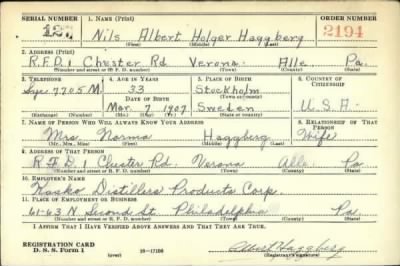 SERIAL NUMBER 1. NAME (Print) ORDER NUMBER
127 Nils Albert Holger Haggberg 2194
(First) (Middle) (Last)
2. ADDRESS (Print)
R.F.D.1 Chester Rd. Verona. Alle. Pa.
(Number and street or R. F. D. number) (Town) (County) (State)
3. TELEPHONE 4. AGE IN YEARS 5. PLACE OF BIRTH 6. COUNTRY OF CITIZENSHIP
7705 M. 33 Stockholm
DATE OF BIRTH (Town or county)
Mar. 7 1907 Sweden U.S.A.
(Exchange) (Number) (Mo.) (Day) (Yr.) (State or country)
7. NAME OF PERSON WHO WILL ALWAYS KNOW YOUR ADDRESS 8. RELATIONSHIP OF THAT PERSON
Mrs. Norma Haggberg Wife
(Mr., Mrs., Miss) (First) (Middle) (Last)
9. ADDRESS OF THAT PERSON
R.F.D.1 Chester Rd. Verona Alle. Pa
(Number and street or R. F. D. number) (Town) (County) (State)
10. EMPLOYER'S NAME
Kasko Distillers Products Corp.
11. PLACE OF EMPLOYMENT OR BUSINESS
61-63 N Second St. Philadelphia Pa.
(Number and street or R. F. D. number) (Town) (County) (State)
I AFFIRM THAT I HAVE VERIFIED ABOVE ANSWERS AND THAT THEY ARE TRUE.
REGISTRATION CARD
D. S. S. Form 1 (over) 16-17105 Albert Haggberg
(Registrant's signature)